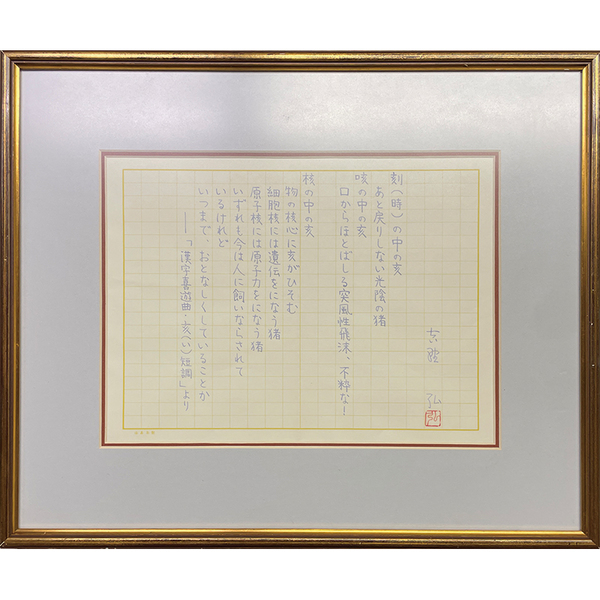 刻(時)の中の亥
あと戻りしない光陰の猪
咳の中の亥
口からほとばしる突風性飛沫、不粋なー
核の中の亥
物の核心に亥がひそむ
細胞核には遺伝をになう猪
原子核には原子力をになう猪
いずれも今は人に飼いならされて
いるけれど
いつまで、おとなしくしていることか
──「漢字喜遊曲・亥(い)短調」より
吉野 弘